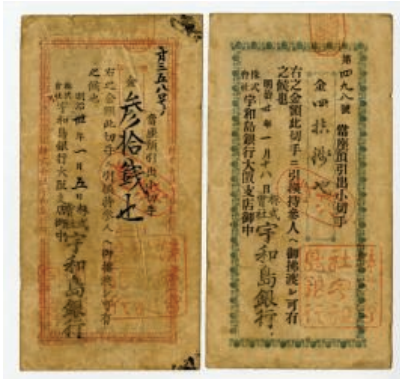 廿三五八号
當座預引出小切手
金参拾銭也
右之金額此切手ニ引換持参人ヘ御拂渡シ可有
之候也
明治卅年一月五日
株式會社宇和島銀行
株式會社宇和島銀行大阪支店御中
第四九八號
當座預引出小切手
金四拾銭也
右之金額此切手ニ引換持参人ヘ御拂渡シ可有
之候也
明治卅年一月十八日
株式會社宇和島銀行
株式會社宇和島銀行大阪支店御中